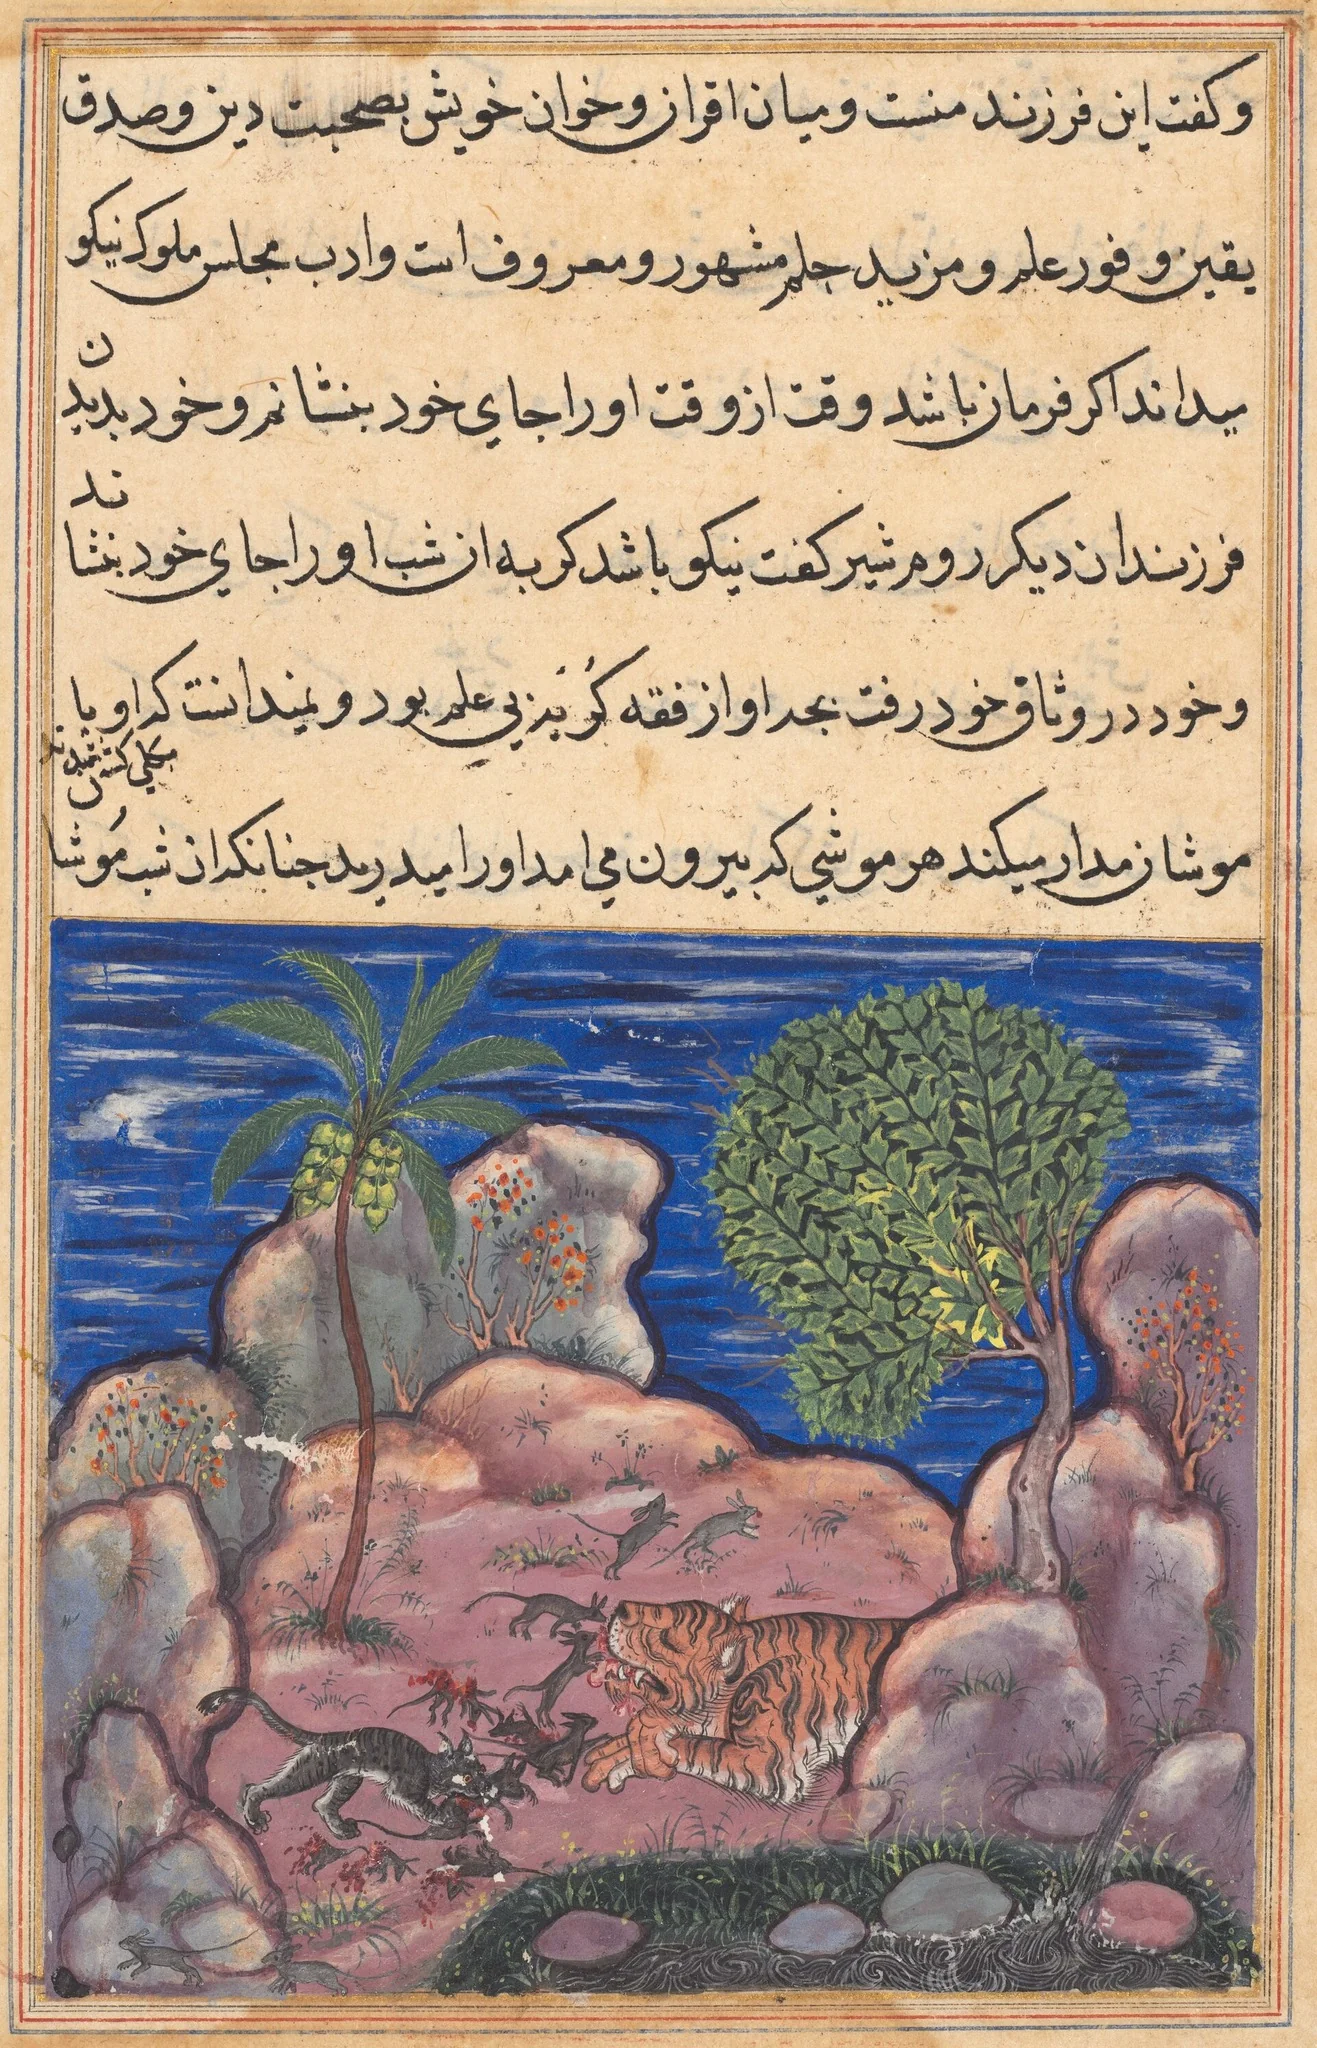 و کفت این فرزند منست و میان اقران و خوان خویش بصحبت دین و صدق
یقین و فور علم و مزید حلم مشهور و معروف است و ادب مجلس ملوک نیکو
میداند اکر فرمان باشد وقت از وقت او را جای خود بنشانم و خود بدیدن
فرزندان دیکر روم شیر کفت نیکو باشد کربه ان شب او را جای خود بنشاند
و خود در وثاق خود رفت بچه او از فقه کُربُزی بی علم بود و نمیدانست که او با
موشان مدار میکند هر موشی که بیرون می امد او را میدرید چنانکه ان شب مُوشان
بکلی کشته شدند